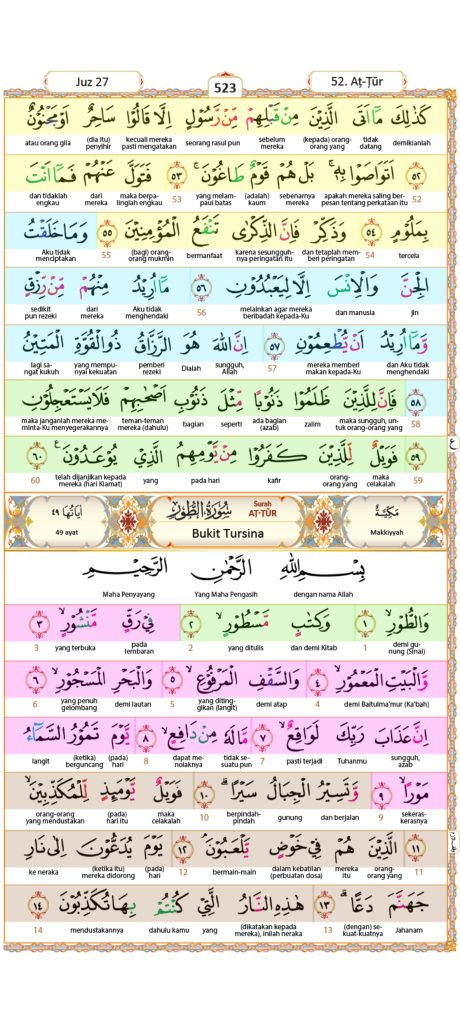 Juz 27 523 52. Aṭ-Ṭūr
كَذٰلِكَ مَآ اَتَى الَّذِيْنَ مِنْ قَبْلِهِمْ مِّنْ رَّسُوْلٍ اِلَّا قَالُوْا سَاحِرٌ اَوْ مَجْنُوْنٌ
demikianlah tidak datang (kepada) orang-orang yang sebelum mereka seorang rasul pun kecuali mereka pasti mengatakan (dia itu) penyihir atau orang gila
٥٢ اَتَوَاصَوْا بِهٖۚ بَلْ هُمْ قَوْمٌ طَاغُوْنَۚ ٥٣ فَتَوَلَّ عَنْهُمْ فَمَآ اَنْتَ
52 apakah mereka saling berpesan tentang perkataan itu sebenarnya mereka (adalah) kaum yang melampaui batas 53 maka berpalinglah engkau dari mereka dan tidaklah engkau
بِمَلُوْمٍ ٥٤ وَذَكِّرْ فَاِنَّ الذِّكْرٰى تَنْفَعُ الْمُؤْمِنِيْنَ ٥٥ وَمَا خَلَقْتُ
tercela 54 dan tetaplah memberi peringatan karena sesungguhnya peringatan itu bermanfaat (bagi) orang-orang mukmin 55 Aku tidak menciptakan
الْجِنَّ وَالْاِنْسَ اِلَّا لِيَعْبُدُوْنِ ٥٦ مَآ اُرِيْدُ مِنْهُمْ مِّنْ رِّزْقٍ
jin dan manusia melainkan agar mereka beribadah kepada-Ku 56 Aku tidak menghendaki dari mereka sedikit pun rezeki
وَّمَآ اُرِيْدُ اَنْ يُّطْعِمُوْنِ ٥٧ اِنَّ اللّٰهَ هُوَ الرَّزَّاقُ ذُو الْقُوَّةِ الْمَتِيْنُ
dan Aku tidak menghendaki mereka memberi makan kepada-Ku 57 sungguh, Allah Dialah pemberi rezeki yang mempunyai kekuatan lagi sangat kukuh
٥٨ فَاِنَّ لِلَّذِيْنَ ظَلَمُوْا ذَنُوْبًا مِّثْلَ ذَنُوْبِ اَصْحٰبِهِمْ فَلَا يَسْتَعْجِلُوْنِ
58 maka sungguh, untuk orang-orang yang zalim ada bagian (azab) seperti bagian teman-teman mereka (dahulu) maka janganlah mereka meminta-Ku menyegerakannya
٥٩ فَوَيْلٌ لِّلَّذِيْنَ كَفَرُوْا مِنْ يَّوْمِهِمُ الَّذِيْ يُوْعَدُوْنَ ٦٠ ع
59 maka celakalah orang-orang yang kafir pada hari yang telah dijanjikan kepada mereka (hari Kiamat) 60
مَكِّيَّةٌ سُوْرَةُ الطُّوْرِ Surah AṬ-ṬŪR اٰيَاتُهَا ٤٩
Makkiyyah Bukit Tursina 49 ayat
بِسْمِ اللّٰهِ الرَّحْمٰنِ الرَّحِيْمِ
dengan nama Allah Yang Maha Pengasih Maha Penyayang
وَالطُّوْرِۙ ١ وَكِتٰبٍ مَّسْطُوْرٍۙ ٢ فِيْ رَقٍّ مَّنْشُوْرٍۙ ٣
demi gunung (Sinai) 1 dan demi Kitab yang ditulis 2 pada lembaran yang terbuka 3
وَّالْبَيْتِ الْمَعْمُوْرِۙ ٤ وَالسَّقْفِ الْمَرْفُوْعِۙ ٥ وَالْبَحْرِ الْمَسْجُوْرِۙ ٦
demi Baitulma'mur (Ka'bah) 4 demi atap yang ditinggikan (langit) 5 demi lautan yang penuh gelombang 6
اِنَّ عَذَابَ رَبِّكَ لَوَاقِعٌۙ ٧ مَّا لَهٗ مِنْ دَافِعٍۙ ٨ يَّوْمَ تَمُوْرُ السَّمَاۤءُ
sungguh, azab Tuhanmu pasti terjadi 7 tidak sesuatu pun dapat menolaknya 8 (pada) hari (ketika) berguncang langit
مَوْرًاۙ ٩ وَّتَسِيْرُ الْجِبَالُ سَيْرًاۗ ١٠ فَوَيْلٌ يَّوْمَىِٕذٍ لِّلْمُكَذِّبِيْنَۙ
sekeras-kerasnya 9 dan berjalan gunung berpindah-pindah 10 maka celakalah (pada) hari itu orang-orang yang mendustakan
١١ الَّذِيْنَ هُمْ فِيْ خَوْضٍ يَّلْعَبُوْنَۘ ١٢ يَوْمَ يُدَعُّوْنَ اِلٰى نَارِ
11 orang-orang yang mereka itu dalam kebatilan (perbuatan dosa) bermain-main 12 (pada) hari (ketika itu) mereka didorong ke neraka
جَهَنَّمَ دَعًّاۗ ١٣ هٰذِهِ النَّارُ الَّتِيْ كُنْتُمْ بِهَا تُكَذِّبُوْنَ ١٤
Jahanam (dengan) sekuat-kuatnya 13 (dikatakan kepada mereka), inilah neraka yang dahulu kamu mendustakannya 14